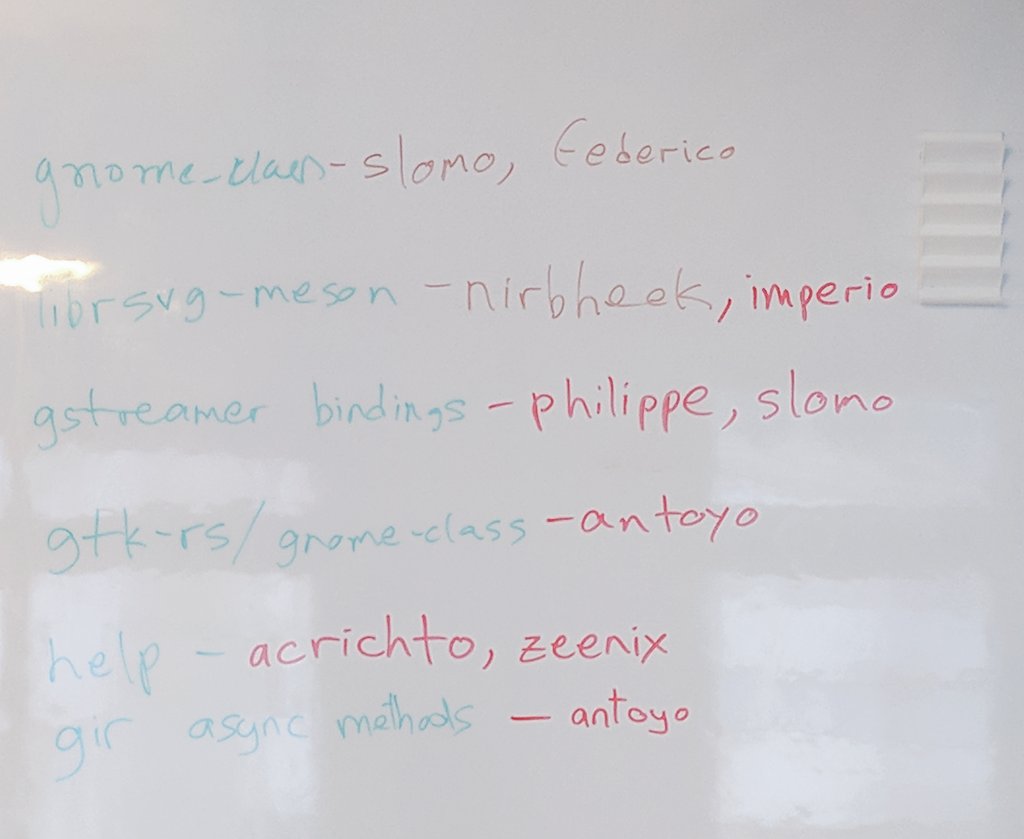 gnome-class - slomo, Federico
librsvg-meson - nirbheek, imperio
gstreamer bindings - philippe, slomo
gtk-rs/gnome-class - antoyo
help - acrichto, zeenix
gir async methods - antoyo